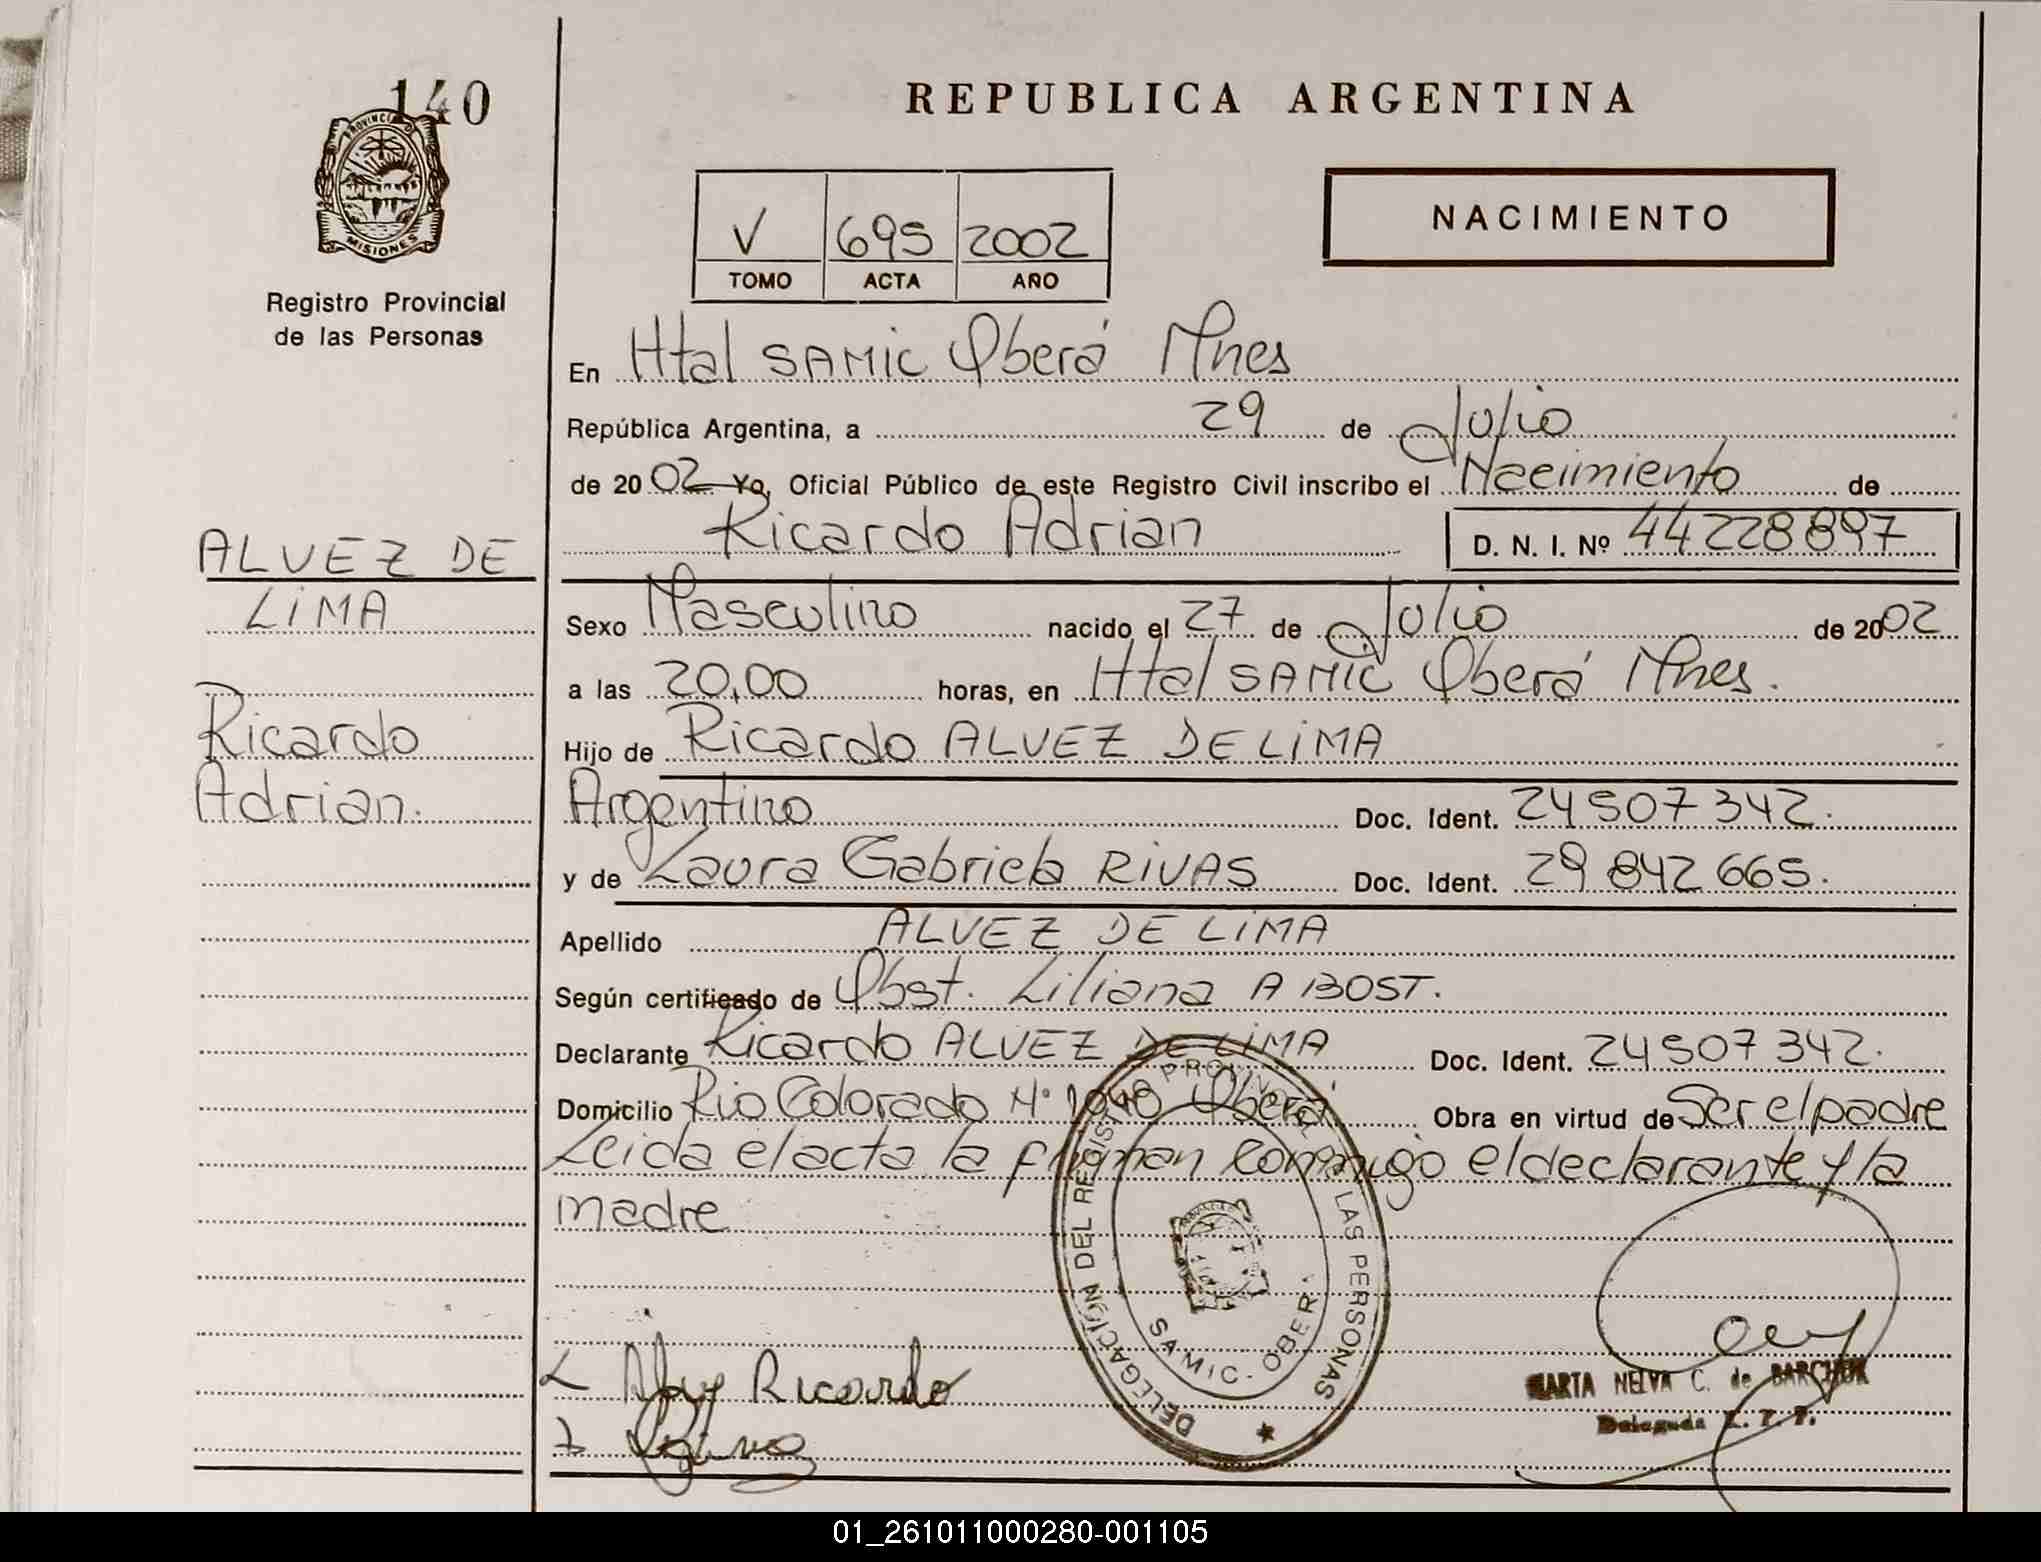 140
REPUBLICA ARGENTINA
PROVINCIA D
MISIONES
Registro Provincial
de las Personas
V 695 2002
TOMO ACTA AÑO
NACIMIENTO
En Htal SAMIC Oberá Mnes
República Argentina, a 29 de Julio
de 2002 Yo, Oficial Público de este Registro Civil inscribo el Nacimiento de
Ricardo Adrian D. N. I. Nº 44228897
ALVEZ DE
LIMA
Ricardo
Adrian.
Sexo Masculino nacido el 27 de Julio de 2002
a las 20,00 horas, en Htal SAMIC Oberá Mnes.
Hijo de Ricardo ALVEZ DE LIMA
Argentino Doc. Ident. 24507342.
y de Laura Gabriela RIVAS Doc. Ident. 29 842 665.
Apellido ALVEZ DE LIMA
Según certificado de Obst. Liliana A BOST.
Declarante Ricardo ALVEZ DE LIMA Doc. Ident. 24507342.
Domicilio Rio Colorado Nº 1040 Oberá Obra en virtud de Ser el padre
Leida el acta la firman conmigo el declarante y la
madre
DELEGACIÓN DEL REGISTRO PROVINCIAL LAS PERSONAS
SAMIC. OBER
Ricardo
MARTA NELVA C. de BARCHUK
Delegada
01_261011000280-001105